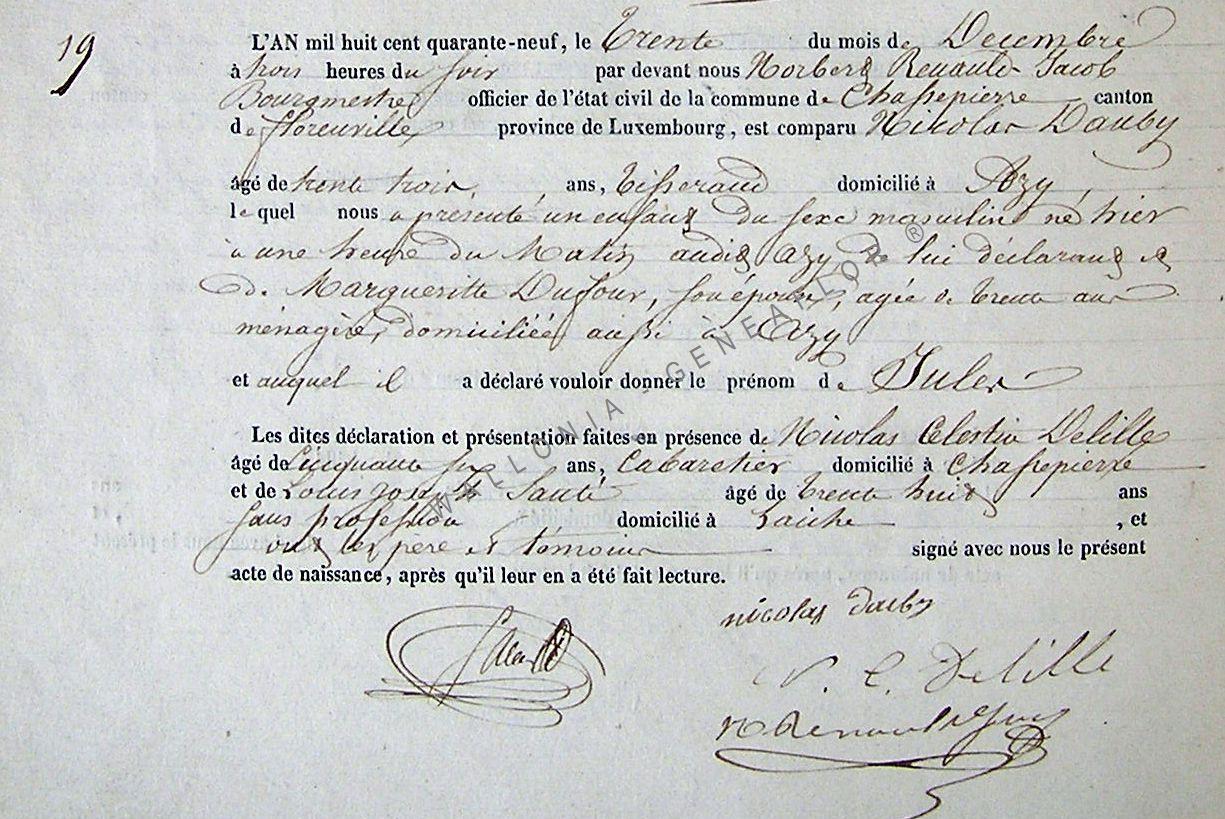 19
L'AN mil huit cent quarante-neuf, le Trente du mois de Décembre
à trois heures du soir par devant nous Norbert Renauld Jacob
Bourgmestre officier de l'état civil de la commune de Chassepierre canton
de florenville province de Luxembourg, est comparu Nikolas Dauby
âgé de trente trois ans, Tisserand domicilié à Azy,
lequel nous a présenté un enfant du sexe masculin né hier
à une heure du Matin audit Azy de lui déclarant et
de Margueritte Dufour, son épouse, agée de trente ans
ménagère, domiciliée aussi à Azy
et auquel il a déclaré vouloir donner le prénom de Jules
Les dites déclaration et présentation faites en présence de Nicolas Celestin Delille
âgé de Cinquante six ans, Cabaretier domicilié à Chassepierre
et de Louis Santé âgé de trente huit ans
sans profession domicilié à Laiche, et
ont les père et témoins signé avec nous le présent
acte de naissance, après qu'il leur en a été fait lecture.
nicolas dauby
Santé
N. C. Delille
N Renauld Jacob
WALLONIA-GENEALOR ®